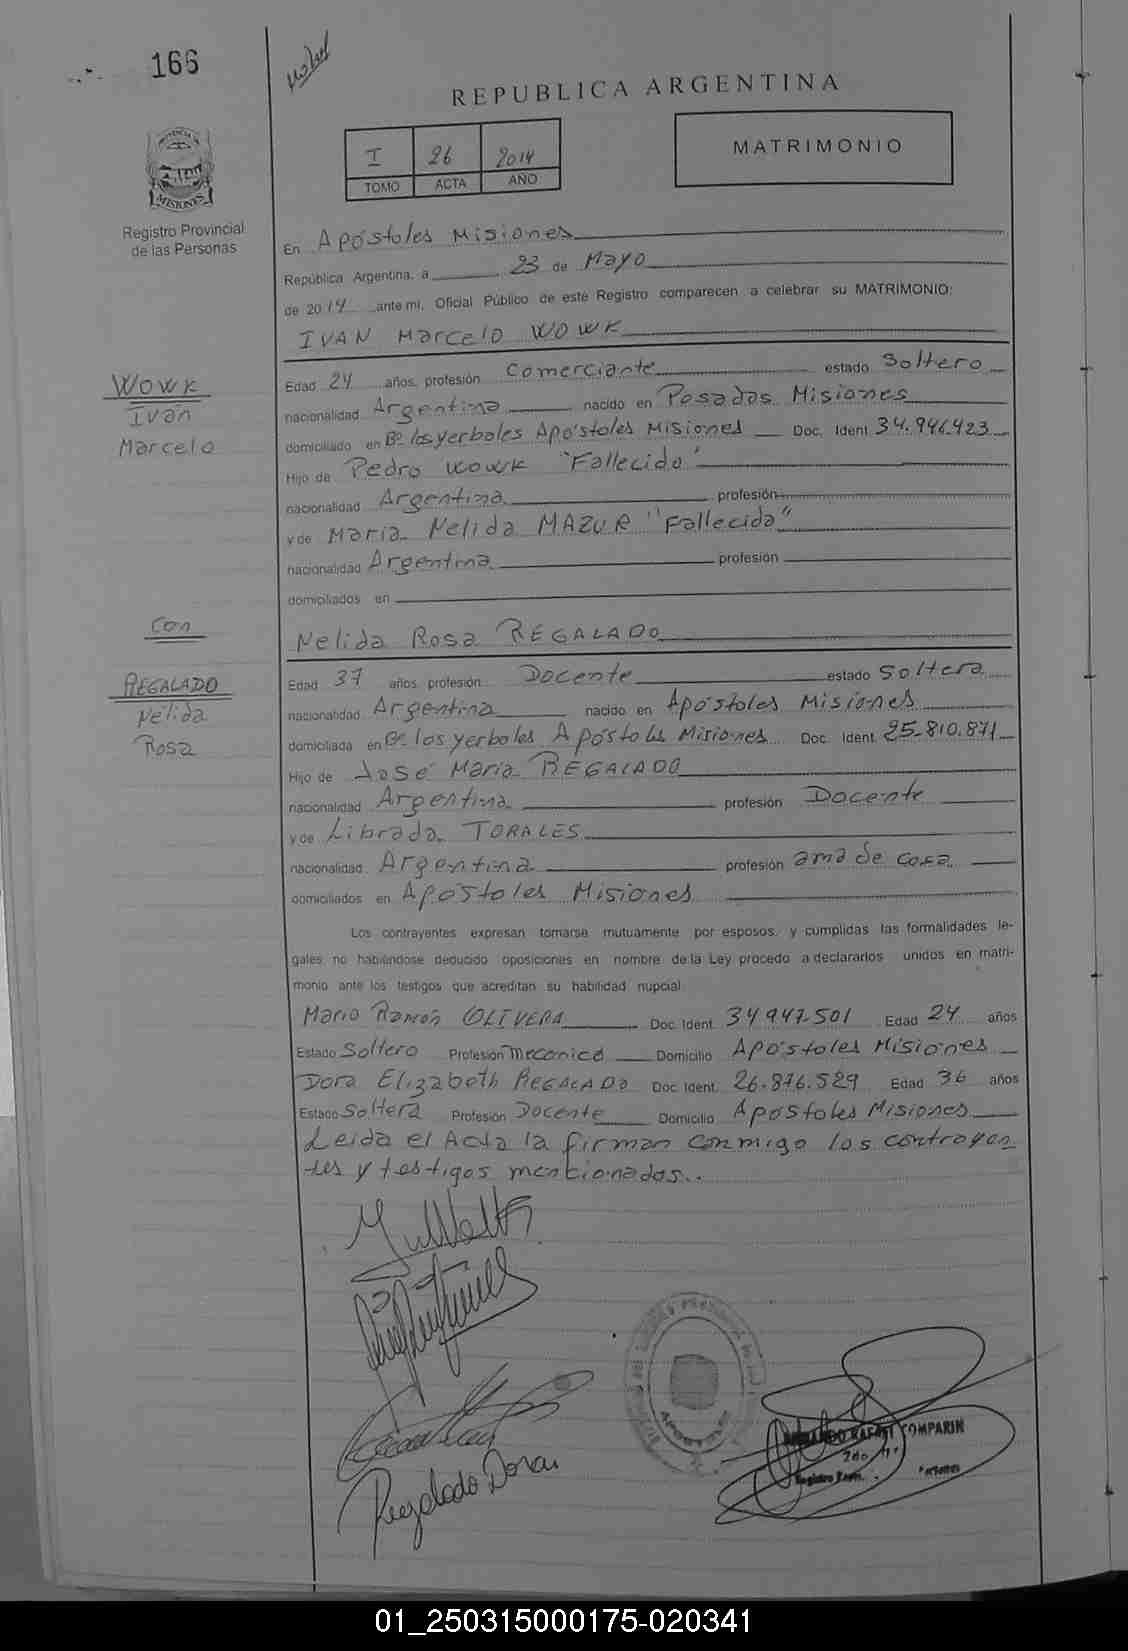 166
REPUBLICA ARGENTINA
I 26 2014
TOMO ACTA AÑO
MATRIMONIO
PROVINCIA DE
MISIONES
Registro Provincial
de las Personas
En Apóstoles Misiones
República Argentina, a 23 de Mayo
de 2014 ante mi, Oficial Público de este Registro comparecen a celebrar su MATRIMONIO:
IVAN Marcelo WOWK
WOWK
Ivan
Marcelo
Edad 24 años, profesión Comerciante estado Soltero
nacionalidad Argentina nacido en Posadas Misiones
domiciliado en Bº los yerbales Apóstoles Misiones Doc. Ident. 34.946.423
Hijo de Pedro WOWK "Fallecido"
nacionalidad Argentina profesión
y de Maria Nelida MAZUR "Fallecida"
nacionalidad Argentina profesión
domiciliados en
Con
Nelida Rosa REGALADO
REGALADO
Nélida
Rosa
Edad 37 años, profesión Docente estado Soltera
nacionalidad Argentina nacido en Apóstoles Misiones
domiciliada en Bº los yerbales Apóstoles Misiones Doc. Ident. 25.810.871
Hijo de José Maria REGALADO
nacionalidad Argentina profesión Docente
y de Librada TORALES
nacionalidad Argentina profesión ama de casa
domiciliados en Apóstoles Misiones
Los contrayentes expresan tomarse mutuamente por esposos, y cumplidas las formalidades le-
gales, no habiéndose deducido oposiciones en nombre de la Ley procedo a declararlos unidos en matri-
monio ante los testigos que acreditan su habilidad nupcial:
Mario Ramón OLIVERA Doc. Ident. 34.947.501 Edad 24 años
Estado Soltero Profesión Mecanico Domicilio Apóstoles Misiones
Dora Elizabeth REGALADO Doc. Ident. 26.876.529 Edad 36 años
Estado Soltera Profesión Docente Domicilio Apóstoles Misiones
Leida el Acta la firman conmigo los contrayen-
tes y testigos mencionados..
Regalado Dora
APOSTOLES
COMPARIN
01_250315000175-020341